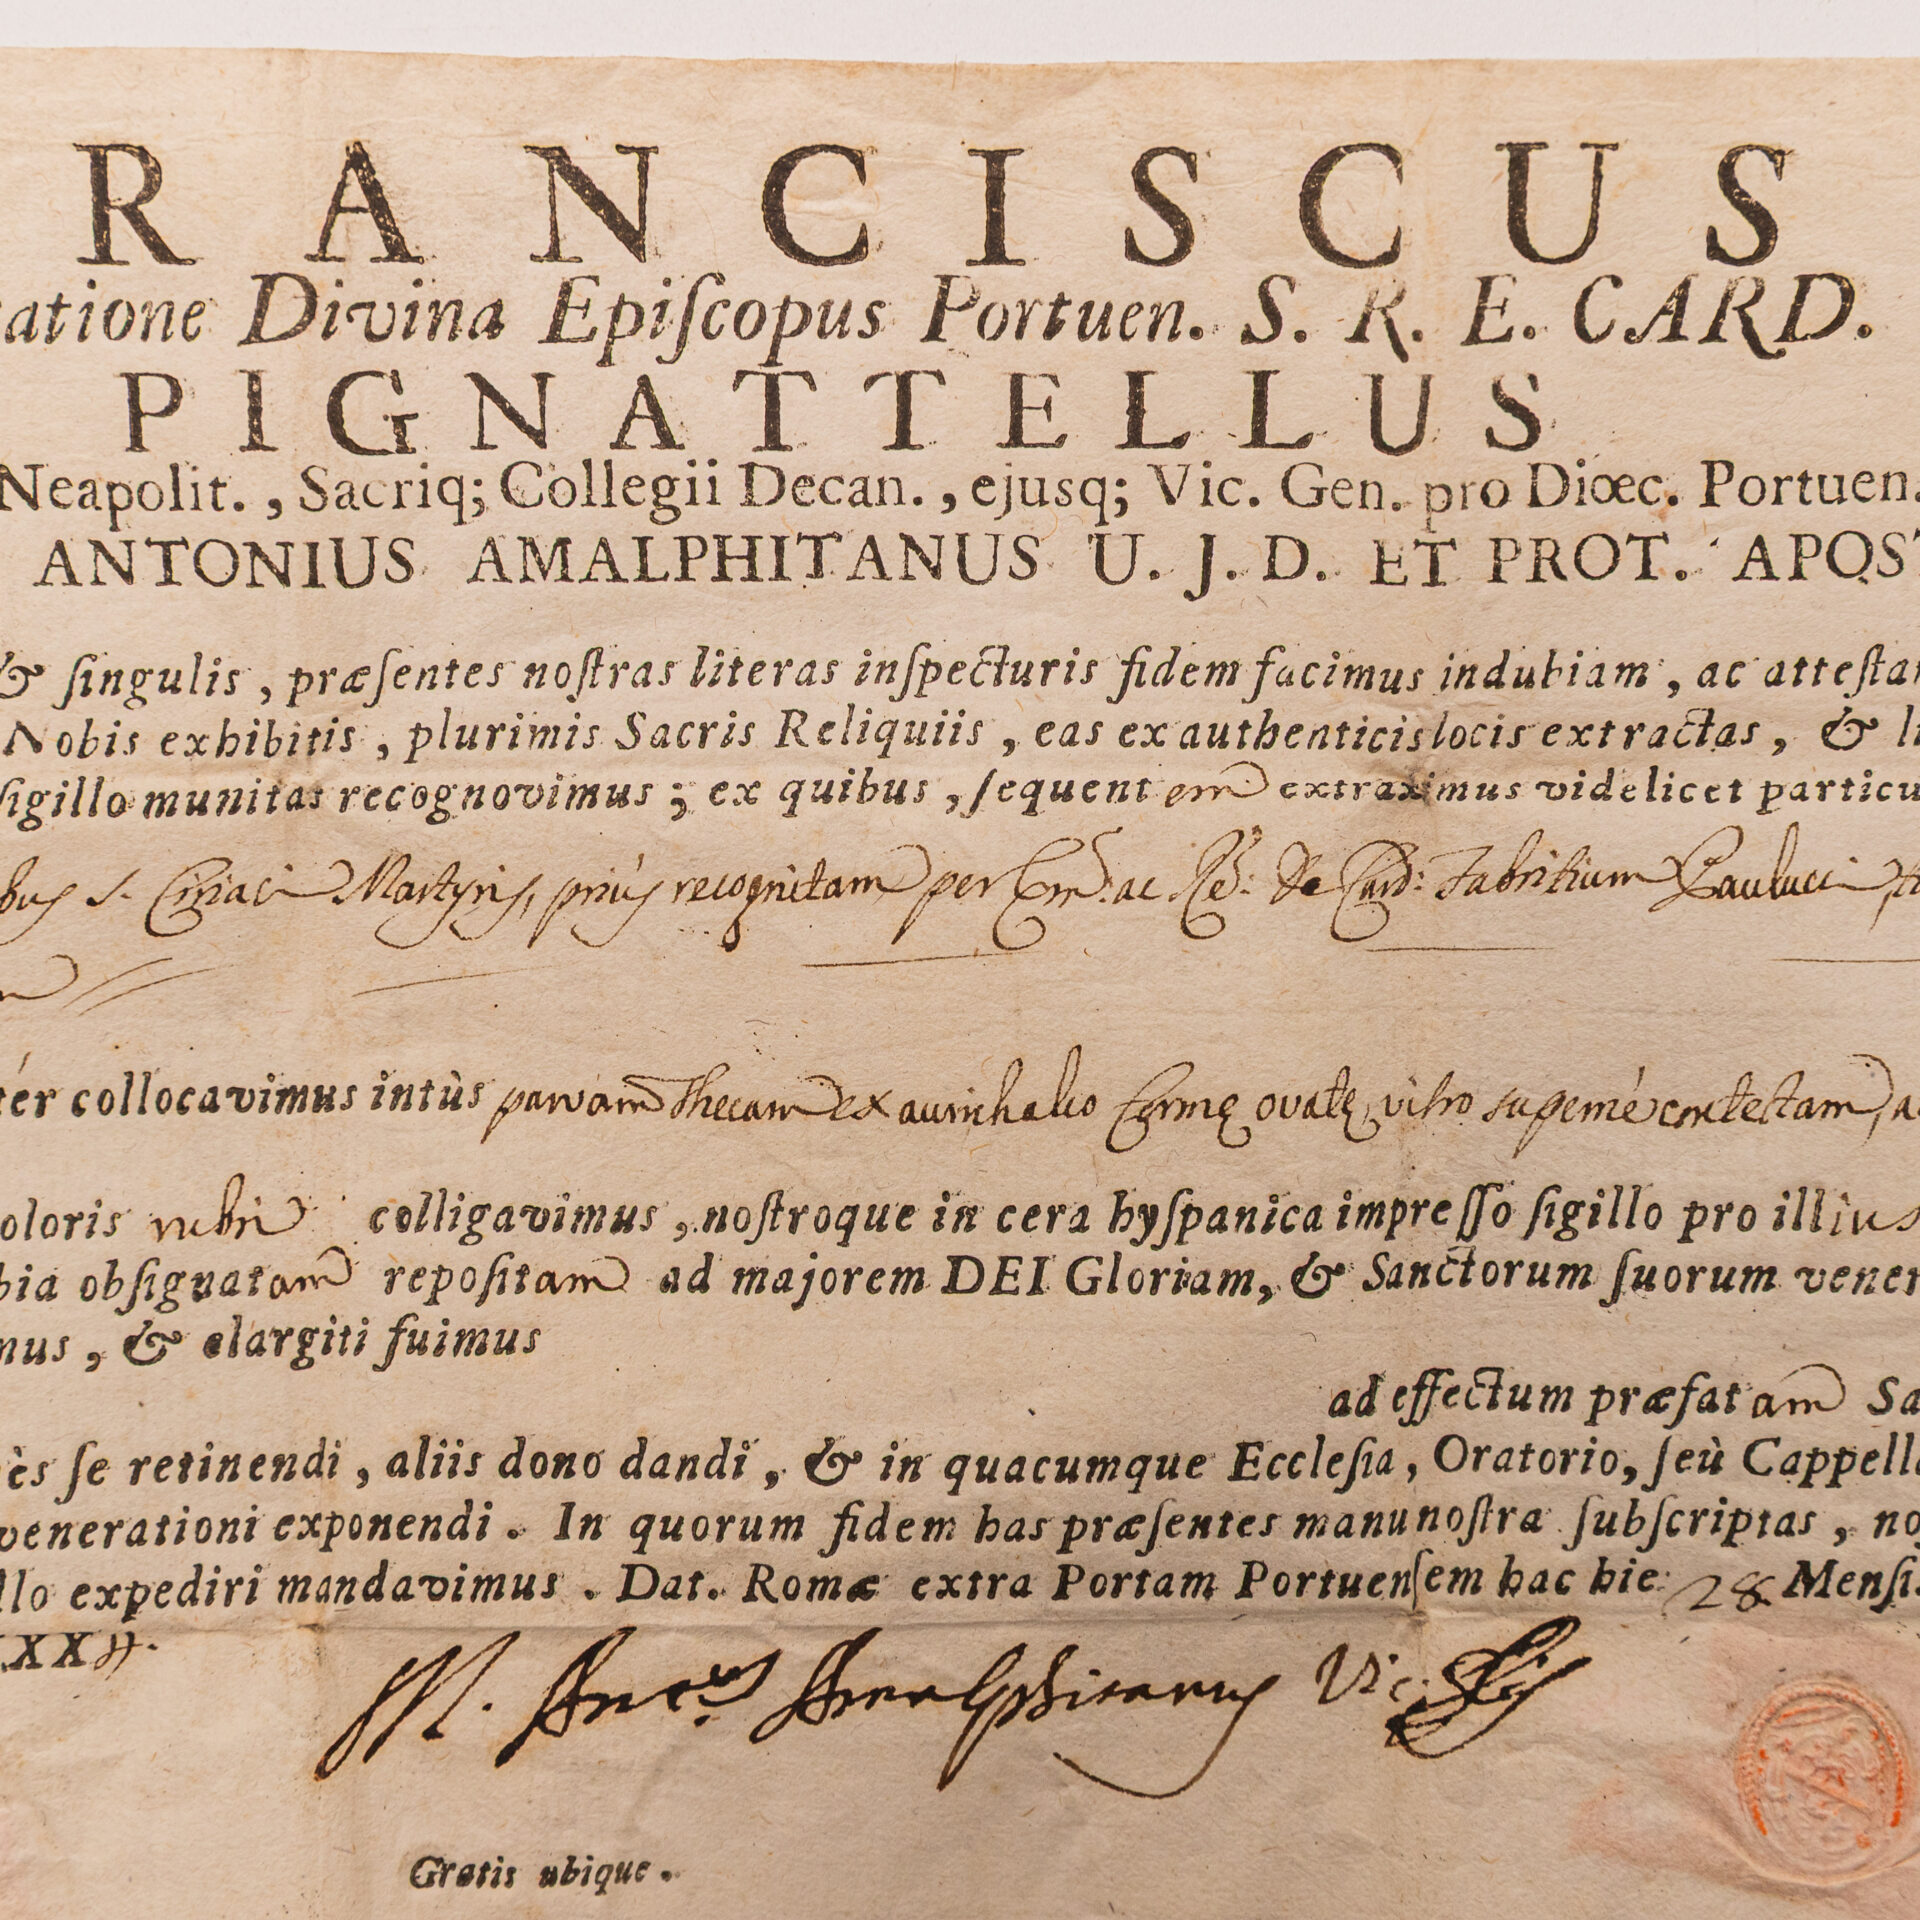 RANCISCUS
atione Divina Epiſcopus Portuen. S. R. E. CARD.
PIGNATTELLUS
Neapolit., Sacriq; Collegii Decan., ejusq; Vic. Gen. pro Diœc. Portuen.
ANTONIUS AMALPHITANUS U. J. D. ET PROT. APOST
& ſingulis, præſentes noſtras literas inſpecturis fidem facimus indubiam, ac atteſtam
Nobis exhibitis, plurimis Sacris Reliquiis, eas ex authenticis locis extractas, & li
ſigillo munitas recognovimus; ex quibus, ſequentem extraximus videlicet particu
bus S. Ciriaci Martyris, priús recognitam per Em. ac Re. De Card: Fabritium Paulucci
m
ter collocavimus intùs parvam Thecam ex aurichalco formę ovatę, vitro supernè contectam, a
oloris rubri colligavimus, noſtroque in cera hyſpanica impreſſo ſigillo pro illius
bia obſignatam repoſitam ad majorem DEI Gloriam, & Sanctorum ſuorum vener
mus, & elargiti fuimus
ad effectum præfatam Sa
ès ſe retinendi, aliis dono dandi, & in quacumque Eccleſia, Oratorio, ſeù Cappella
venerationi exponendi. In quorum fidem has præſentes manu noſtra ſubſcriptas, noſ
llo expediri mandavimus. Dat. Romæ extra Portam Portuenſem hac bie 28 Menſis
XX
M. Ant.us Amalphitanus Vic.
Gratis ubique.